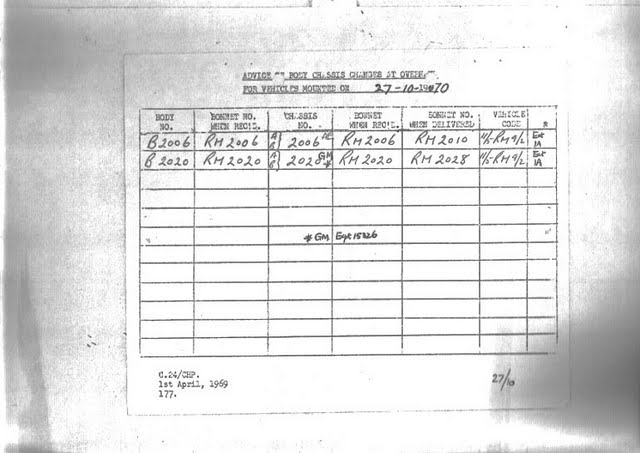 ADVICE OF BODY CHASSIS CHANGES AT OVERHAUL
FOR VEHICLES MOUNTED ON 27-10-1970
BODY NO. BONNET NO. WHEN REC'D. CHASSIS NO. BONNET WHEN REC'D. BONNET NO. WHEN DELIVERED VEHICLE CODE *
B2006 RM2006 A B 2006 RM2006 RM2010 RM9/2 Ext 1A
B2020 RM2020 A B 2020 GM * RM2020 RM2028 RM9/2 Ext 1A
* GM Expt 15226
C.24/CHP.
1st April, 1969
177.
27/10